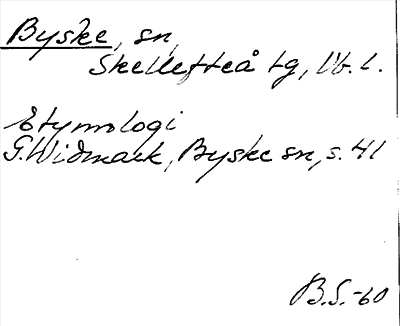 Byske, sn,
Skellefteå tg, Vb. l.
Etymologi
G. Widmark, Byske sn, s. 41
B.S.-60